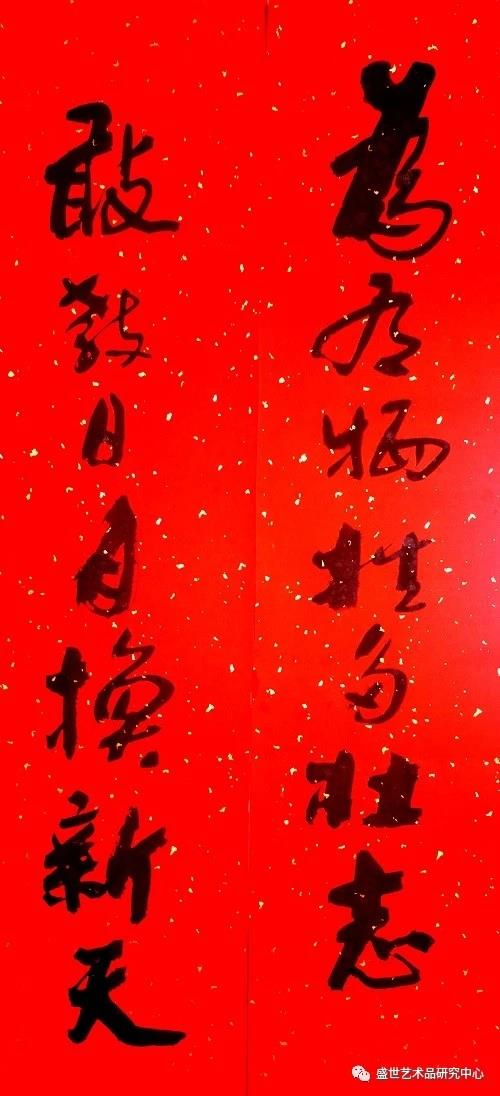 為有牺牲多壮志
敢教日月換新天
盛世艺术品研究中心